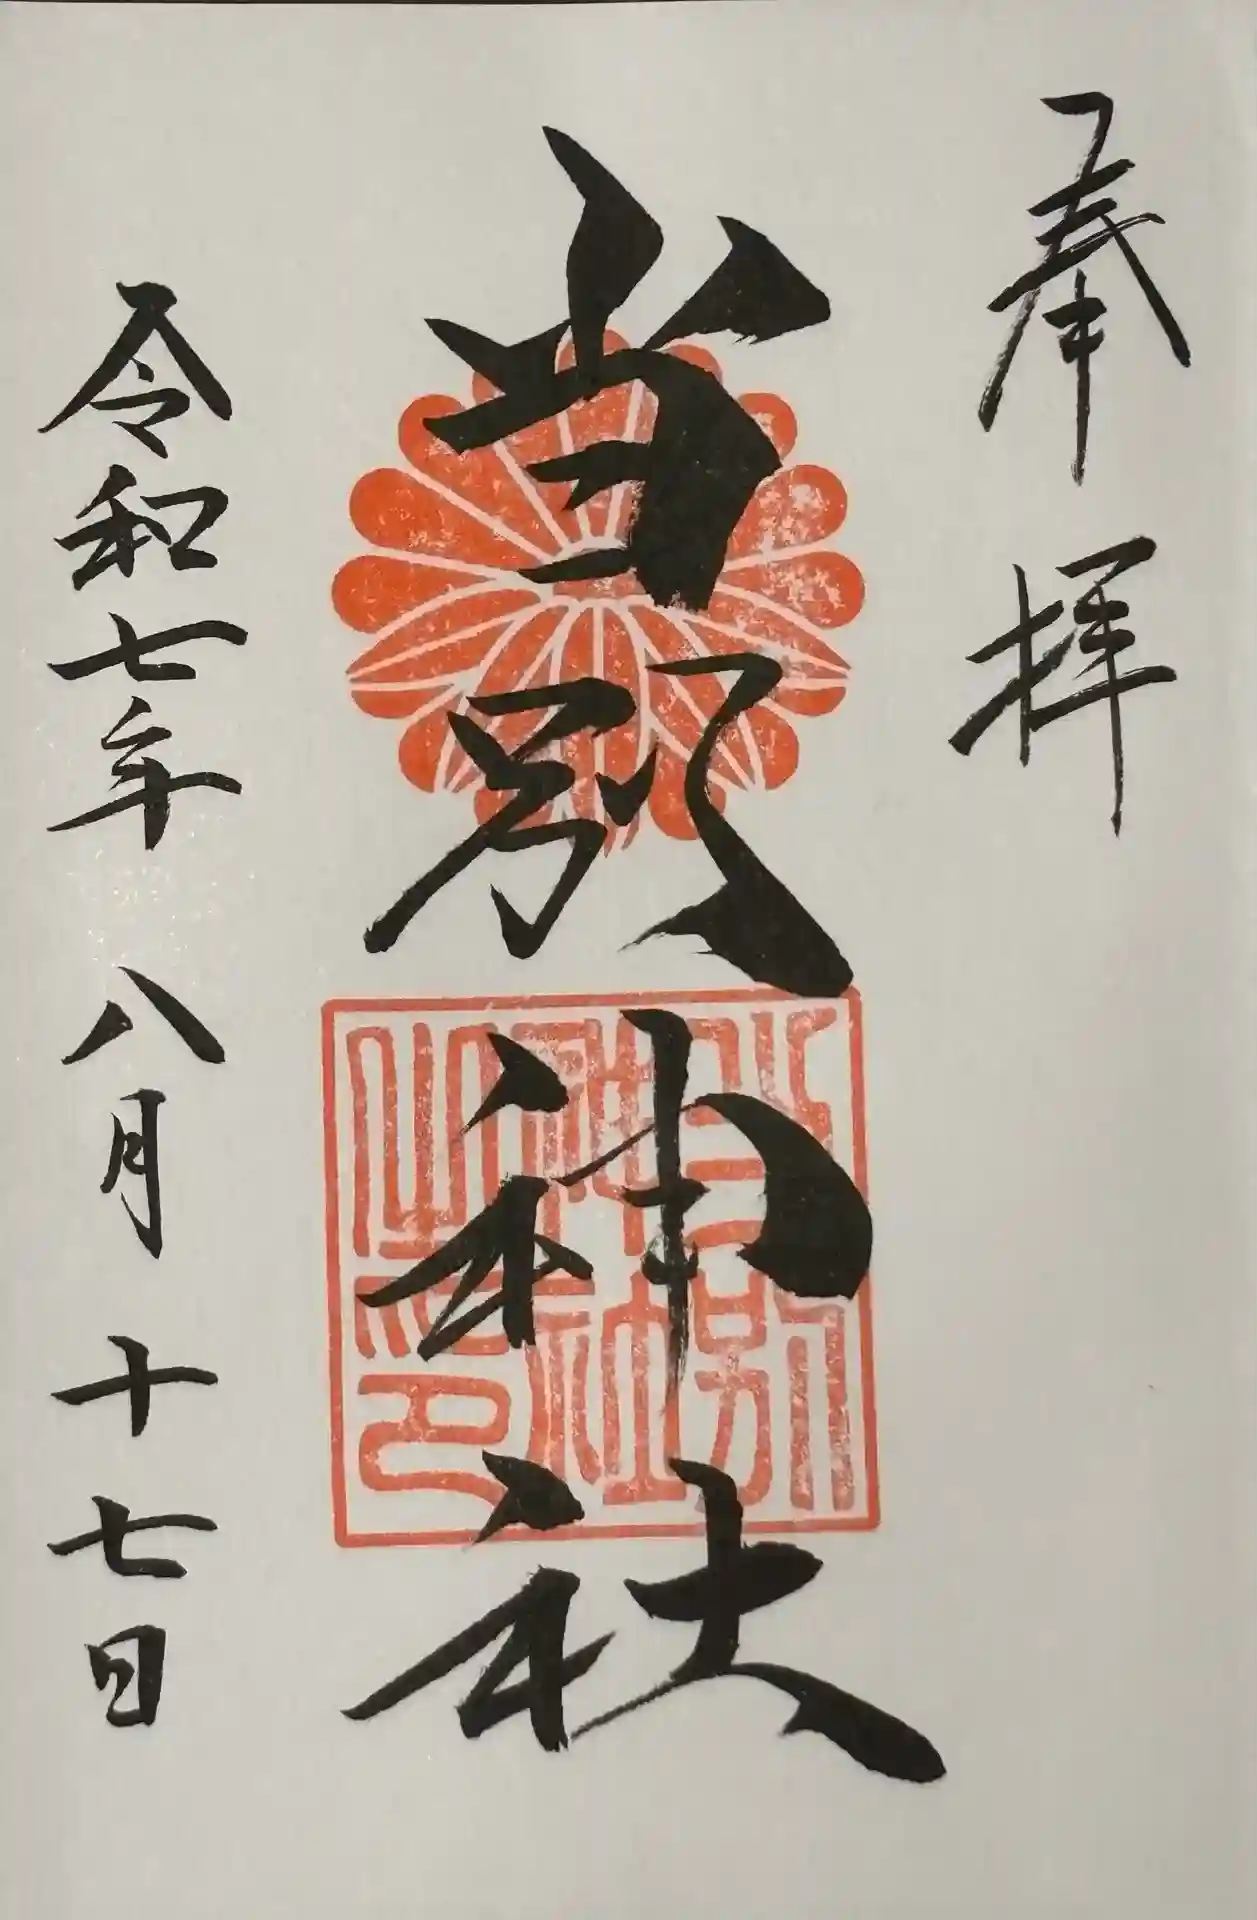 奉拝
当別神社
当別
神社
之印
令和七年八月十七日